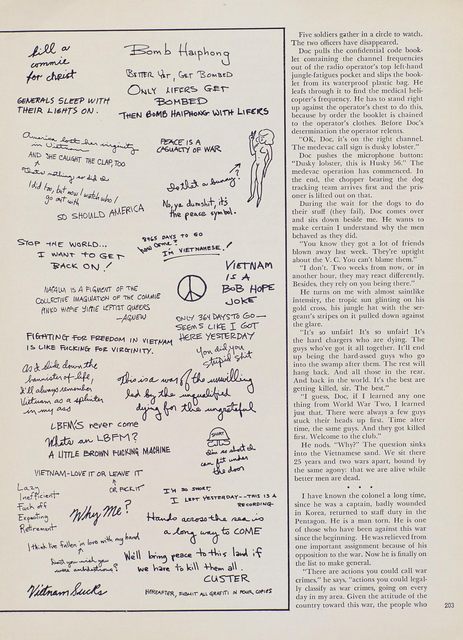 kill a
commie
for christ
Bomb Haiphong
BETTER YET, GET BOMBED
ONLY LIFERS GET
BOMBED
THEN BOMB HAIPHONG WITH LIFERS
GENERALS SLEEP WITH
THEIR LIGHTS ON.
America lost her virginity
in Vietnam
AND SHE CAUGHT THE CLAP, TOO
I did too, but now I watch who I
go out with
SO SHOULD AMERICA
PEACE IS A
CASUALTY OF WAR
Is that a bunny?
No, ya dumshit, it's
the peace symbol.
STOP THE WORLD...
I WANT TO GET
BACK ON!
DAYS TO GO
How come?
I'M VIETNAMESE!
VIETNAM
IS A
BOB HOPE
JOKE
IS A FIGMENT OF THE
COLLECTIVE IMAGINATION OF THE COMMIE
PINKO HOMIE SIMPIE LEFTIST QUEERS
—AGNEW
ONLY 364 DAYS TO GO—
SEEMS LIKE I GOT
HERE YESTERDAY
You did you
stupid shit
FIGHTING FOR FREEDOM IN VIETNAM
IS LIKE FUCKING FOR VIRGINITY.
As I slide down the
bannister of life,
I'll always remember
Vietnam as a splinter
in my ass
This is a war of the unwilling
led by the unqualified
dying for the ungrateful
LBFM'S never come
Whats an LBFM?
A LITTLE BROWN FUCKING MACHINE
SHORT
I'm so short I
can fit under
the door
VIETNAM-LOVE IT OR LEAVE IT
OR FUCK IT
Lazy
Inefficient
Fuck off
Expecting
Retirement
Why Me?
I'M SO SHORT,
I LEFT YESTERDAY—THIS IS A
RECORDING.
Hands across the sea is
a long way to COME
I think I've fallen in love with my hand
Don't you wish you
were ambidextrous?
We'll bring peace to this land if
we have to kill them all.
CUSTER
Vietnam Sucks
HEREAFTER, SUBMIT ALL GRAFITTI IN FOUR COPIES
Five soldiers gather in a circle to watch.
The two officers have disappeared.
Doc pulls the confidential code book-
let containing the channel frequencies
out of the radio operator's top left-hand
jungle-fatigues pocket and slips the book-
let from its waterproof plastic bag. He
leafs through it to find the medical heli-
copter's frequency. He has to stand right
up against the operator's chest to do this,
because by order the booklet is chained
to the operator's clothes. Before Doc's
determination the operator relents.
"OK, Doc, it's on the right channel.
The medevac call sign is dusky lobster."
Doc pushes the microphone button:
"Dusky lobster, this is Husky 56." The
medevac operation has commenced. In
the end, the chopper bearing the dog
tracking team arrives first and the pris-
oner is lifted out on that.
During the wait for the dogs to do
their stuff (they fail), Doc comes over
and sits down beside me. He wants to
make certain I understand why the men
behaved as they did.
"You know they got a lot of friends
blown away last week. They're uptight
about the V. C. You can't blame them."
"I don't. Two weeks from now, or in
another hour, they may react differently.
Besides, they rely on you being there."
He turns on me with almost saintlike
intensity, the tropic sun glinting on his
gold cross, his jungle hat with the ser-
geant's stripes on it pulled down against
the glare.
"It's so unfair! It's so unfair! It's
the hard chargers who are dying. The
guys who've got it all together. It'll end
up being the hard-assed guys who go
into the swamp after them. The rest will
hang back. And all those in the rear.
And back in the world. It's the best are
getting killed, sir. The best."
"I guess, Doc, if I learned any one
thing from World War Two, I learned
just that. There were always a few guys
stuck their heads up first. Time after
time, the same guys. And they got killed
first. Welcome to the club."
He nods. "Why?" The question sinks
into the Vietnamese sand. We sit there
25 years and two wars apart, bound by
the same agony: that we are alive while
better men are dead.
• • •
I have known the colonel a long time,
since he was a captain, badly wounded
in Korea, returned to staff duty in the
Pentagon. He is a man torn. He is one
of those who have been against this war
since the beginning. He was relieved from
one important assignment because of his
opposition to the war. Now he is finally on
the list to make general.
"There are actions you could call war
crimes," he says, "actions you could legal-
ly classify as war crimes, going on every
day in my area. Given the attitude of the
country toward this war, the people who
203